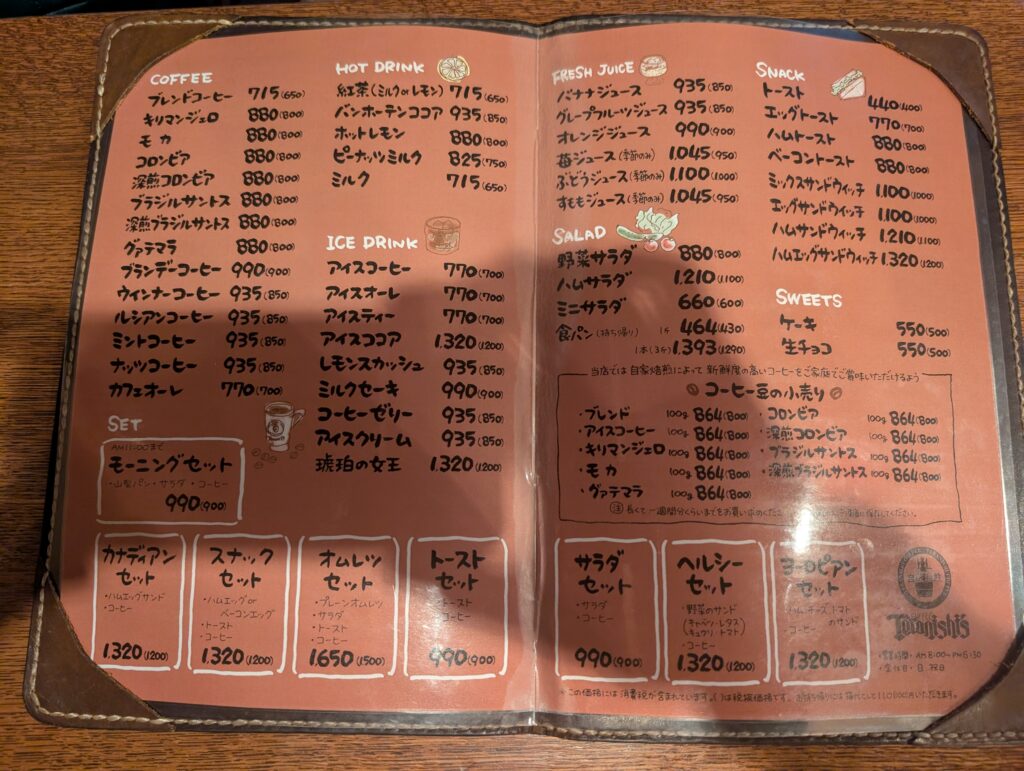 COFFEE
ブレンドコーヒー 715(650)
キリマンジェロ 880(800)
モカ 880(800)
コロンビア 880(800)
深煎コロンビア 880(800)
ブラジルサントス 880(800)
深煎ブラジルサントス 880(800)
グァテマラ 880(800)
ブランデーコーヒー 990(900)
ウィンナーコーヒー 935(850)
ルシアンコーヒー 935(850)
ミントコーヒー 935(850)
ナッツコーヒー 935(850)
カフェオーレ 770(700)
SET
AM11:00まで
モーニングセット
・山型パン・サラダ・コーヒー
990(900)
HOT DRINK
紅茶(ミルクorレモン) 715(650)
バンホーテンココア 935(850)
ホットレモン 880(800)
ピーナッツミルク 825(750)
ミルク 715(650)
ICE DRINK
アイスコーヒー 770(700)
アイスオーレ 770(700)
アイスティー 770(700)
アイスココア 1.320(1200)
レモンスカッシュ 935(850)
ミルクセーキ 990(900)
コーヒーゼリー 935(850)
アイスクリーム 935(850)
琥珀の女王 1.320(1200)
カナディアン
セット
・ハムエッグサンド
・コーヒー
1.320(1200)
スナック
セット
・ハムエッグor
ベーコンエッグ
・トースト
・コーヒー
1.320(1200)
オムレツ
セット
・プレーンオムレツ
・サラダ
・トースト
・コーヒー
1.650(1500)
トースト
セット
・トースト
・コーヒー
990(900)
FRESH JUICE
バナナジュース 935(850)
グレープフルーツジュース 935(850)
オレンジジュース 990(900)
苺ジュース(季節のみ) 1.045(950)
ぶどうジュース(季節のみ) 1.100(1000)
すももジュース(季節のみ) 1.045(950)
SALAD
野菜サラダ 880(800)
ハムサラダ 1.210(1100)
ミニサラダ 660(600)
食パン(持ち帰り) 1ケ 464(430)
1本(3ケ) 1.393(1290)
SNACK
トースト 440(400)
エッグトースト 770(700)
ハムトースト 880(800)
ベーコントースト 880(800)
ミックスサンドウィッチ 1.100(1000)
エッグサンドウィッチ 1.100(1000)
ハムサンドウィッチ 1.210(1100)
ハムエッグサンドウィッチ 1.320(1200)
SWEETS
ケーキ 550(500)
生チョコ 550(500)
当店では自家焙煎によって新鮮度の高いコーヒーをご家庭でご賞味いただけるよう
コーヒー豆の小売り
・ブレンド 100g 864(800)
・アイスコーヒー 100g 864(800)
・キリマンジェロ 100g 864(800)
・モカ 100g 864(800)
・グァテマラ 100g 864(800)
・コロンビア 100g 864(800)
・深煎コロンビア 100g 864(800)
・ブラジルサントス 100g 864(800)
・深煎ブラジルサントス 100g 864(800)
注 長くて一週間分くらいまでをお買い求めくださ 保存してください。
サラダ
セット
・サラダ
・コーヒー
990(900)
ヘルシー
セット
・野菜のサンド
(キャベツ・レタス)
(キュウリ・トマト)
・コーヒー
1.320(1200)
ヨーロピアン
セット
・ハム・チーズ・トマト
のサンド
・コーヒー
1.320(1200)
Toranishi's
・営業時間・AM8:00〜PM5:30
・定休日・日.祝日
※この価格には消費税が含まれています。( )は税抜価格です。お持ち帰りには箱代として110(100)円いただきます。